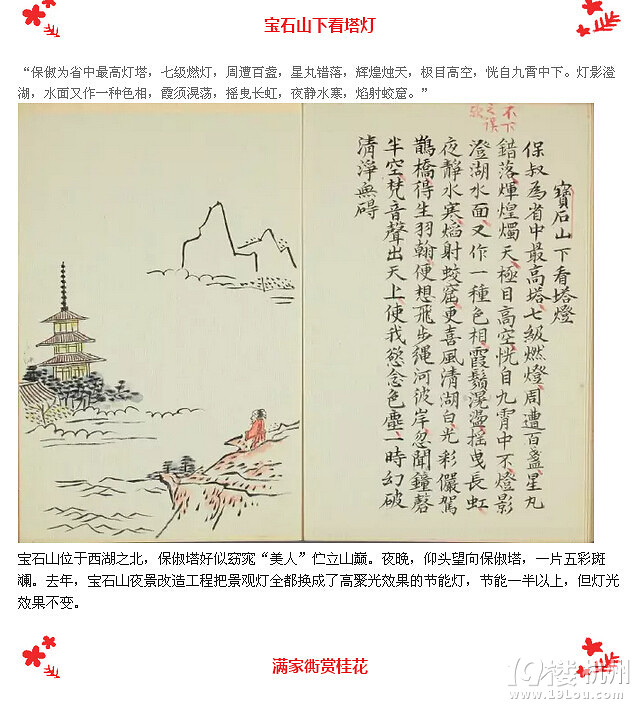 宝石山下看塔灯
“保俶为省中最高灯塔，七级燃灯，周遭百盏，星丸错落，辉煌烛天，极目高空，恍自九霄中下。灯影澄
湖，水面又作一种色相，霞须滉荡，摇曳长虹，夜静水寒，焰射蛟窟。”
不下
之误
寶石山下看塔燈
保叔為省中最高塔七級燃燈周遭百盞星丸
錯落煇煌燭天極目高空恍自九霄中不燈影
澄湖水面又作一種色相霞鬚滉盪搖曳長虹
夜靜水寒熖射蛟窟更喜風清湖白光彩儼駕
鵲橋得生羽翰便想飛步繩河彼岸忽聞鐘磬
半空梵音聲出天上使我慾念色塵一時幻破
清淨無碍
宝石山位于西湖之北，保俶塔好似窈窕“美人”伫立山巅。夜晚，仰头望向保俶塔，一片五彩斑
斓。去年，宝石山夜景改造工程把景观灯全都换成了高聚光效果的节能灯，节能一半以上，但灯光
效果不变。
满家衖赏桂花
19楼杭州
www.19Lou.com